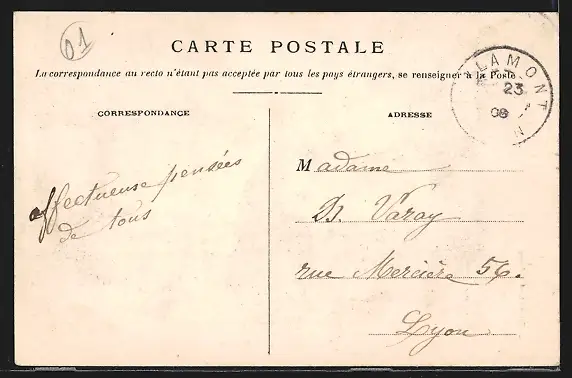 01
CARTE POSTALE
La correspondance au recto n'étant pas acceptée par tous les pays étrangers, se renseigner à la Poste
LAMONT
23
08
N
CORRESPONDANCE
ADRESSE
affectueuse pensées
de tous
Madame
Varay
rue Mercière 56.
Lyon